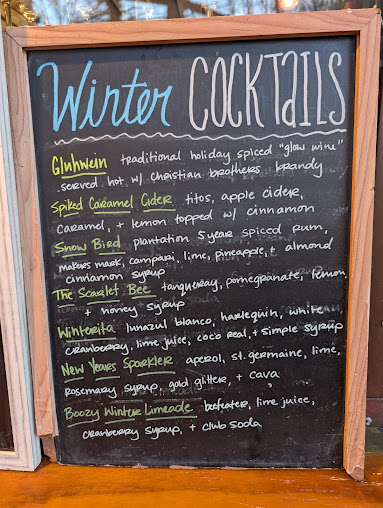 Winter COCKTaILS
Gluhwein traditional holiday spiced "glow wine"
served hot w/ Christian brothers brandy
Spiked Caramel Cider titos, apple cider,
caramel, + lemon topped w/ cinnamon
Snow Bird plantation 5 year spiced rum,
makers mark, campari, lime, pineapple, + almond
cinnamon syrup
The Scarlet Bee tangueray, pomegranate, lemon,
+ honey syrup
Winterita lunazul blanco, harlequin, white
cranberry, lime juice, coco real, + simple syrup
New Years Sparkler aperol, st. germaine, lime,
rosemary syrup, gold glitter, + cava
Boozy Winter Limeade beefeater, lime juice,
cranberry syrup, + club soda